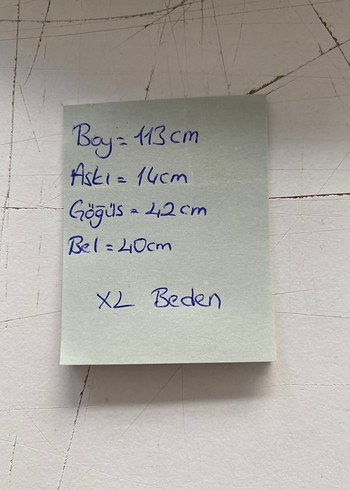 Boy = 113 cm
Askı = 14cm
Göğüs = 42 cm
Bel = 40cm
XL Beden